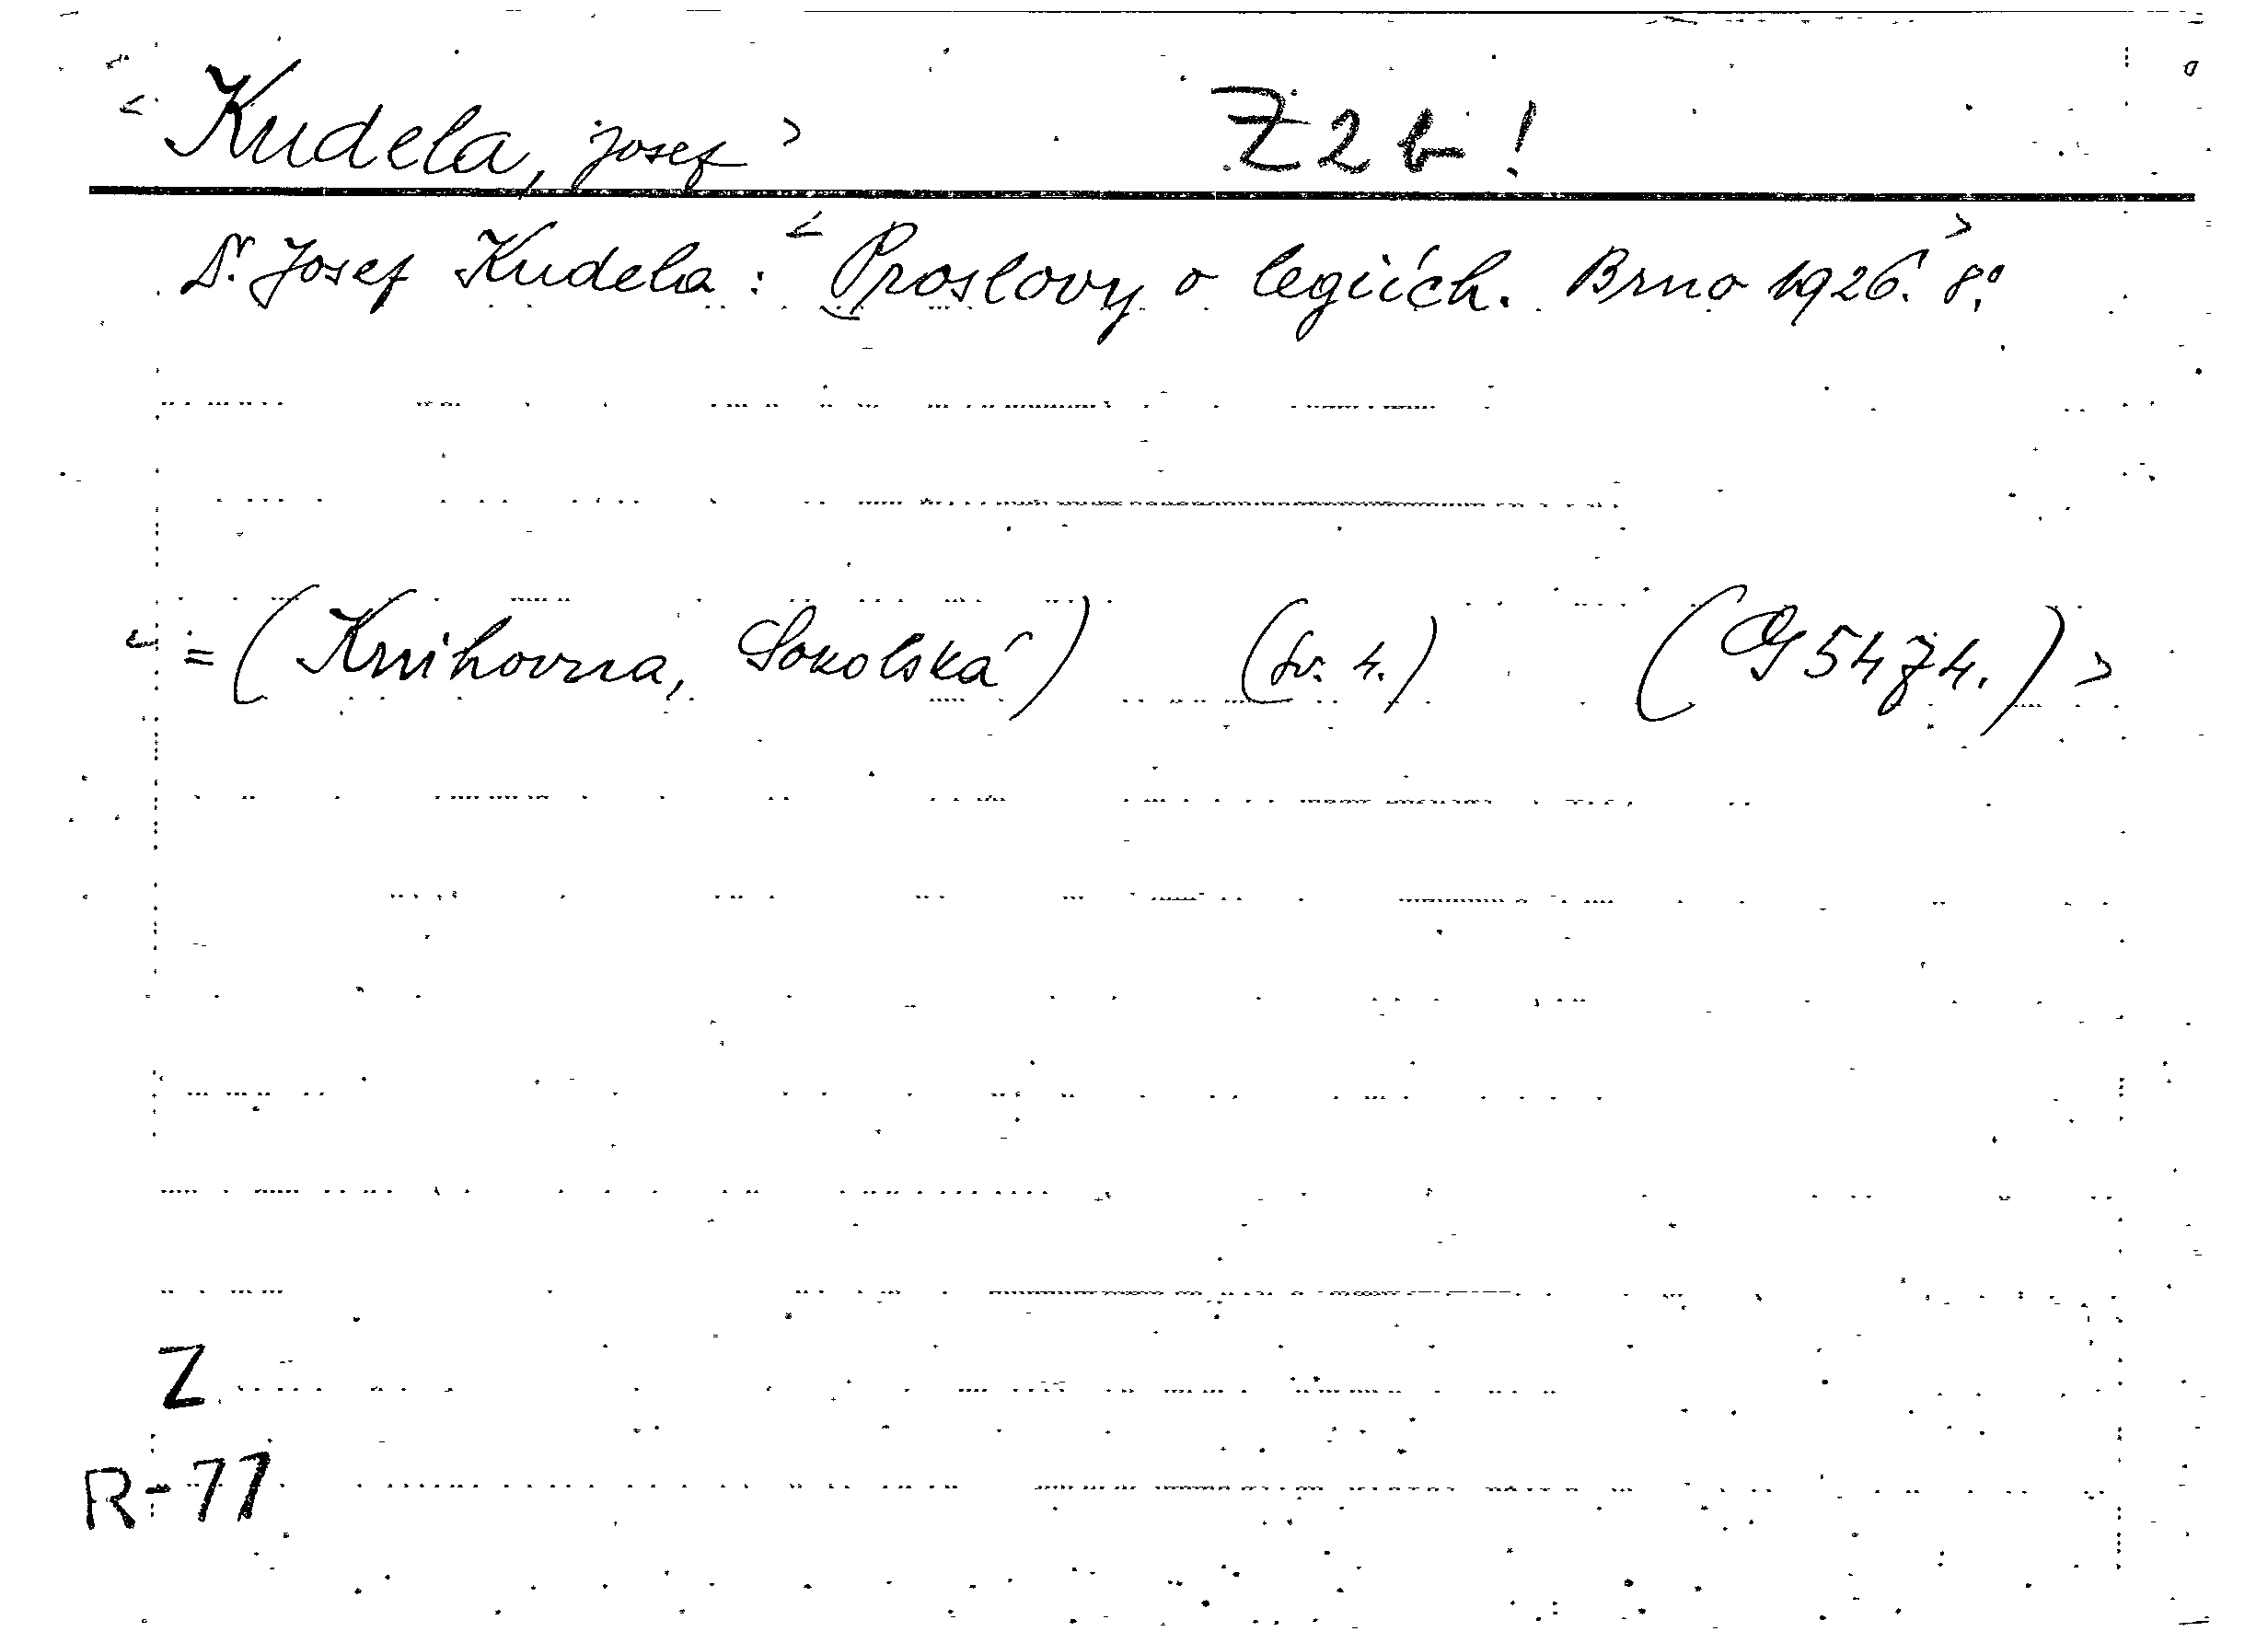 < Kudela, Josef > Z 2 b !
Dr. Josef Kudela : < Proslovy o legiích. Brno 1926. 8.° >
< = (Knihovna, Sokolská) (sv. 4.) (G 5474.) >
Z
R-77